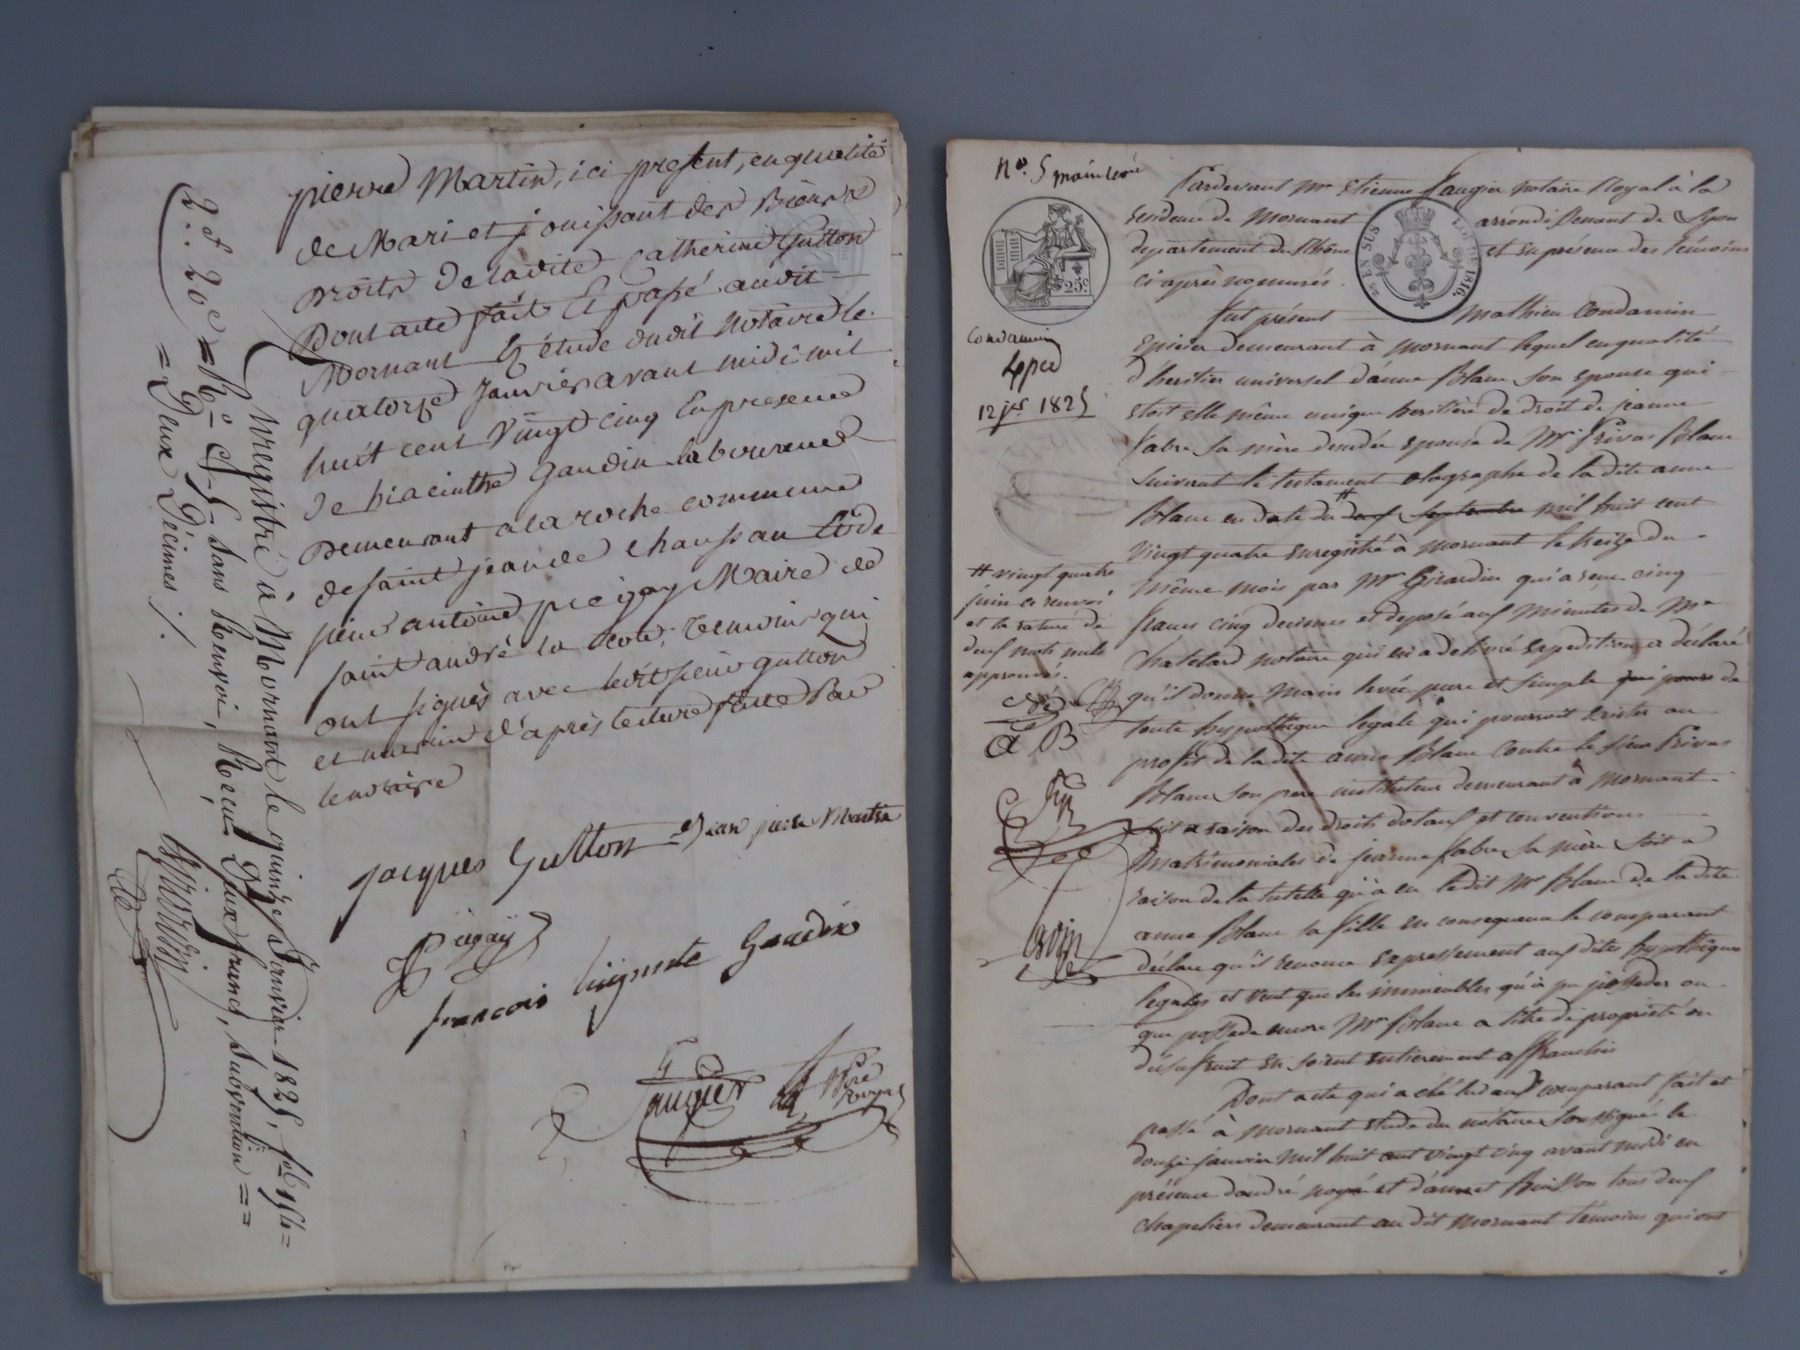 pierre Martin, ici present, en qualité
de Mari et jouissant des Biens &
Droits De la dite Catherine Gutton
Dont acte fait Et passé audit
Mornant Et étude dudit Notaire le
quatorze Janvier avant midi mil
huit cent Vingt cinq En presence
de hiacinthe Gaudin laboureur
Demeurant a la roche commune
de saint jean de Chaussan Et de
sieur antoine piegay Maire de
saint andré la cote, temoins qui
ont signés avec ledit sieur gutton
et martin d'après lecture faite Par
le notaire
Jacques Gutton Jean pierre Martin
Piegaÿ
françois higinte Gaudin
Saugier
Enregistré à Mornant le quinze Janvier 1825, fo 154 =
Co 4-5- Sans Renvoi, Reçu Deux francs, Subvention ==
2f 20c = Deux Décimes ./.
Girardin
No. 5 main levée
Pardevant Mre Etienne Saugier notaire Royal à la
residence de Mornant arrondissement de Lyon
departement du Rhône et en présence des temoins
ci après nommés.
25c
EN SUS
LOI DE 1816.
fut présent Mathieu Condamin
Epicier demeurant à Mornant lequel en qualité
d'héritier universel d'anne Blanc son epouse qui
etoit elle même unique heritière de droit de jeanne
fabre sa mère decedée epouse de Mr. Privas Blanc
Suivant le testament olographe de la dite anne
Blanc en date du # neuf Septembre mil huit cent
vingt quatre enregistré à Mornant le treize du
même mois par Mr Girardin qui a reçu cinq
francs cinq decimes et deposé aux minutes de Me
Chatelard notaire qui en a delivré expedition a déclaré
qu'il donne main levée pure et simple que pour de
toute hypothèque legale qui pourroit exister au
profit de la dite anne Blanc contre le sieur Privas
Blanc son pere instituteur demeurant à Mornant
soit a raison des droits dotaux et conventions
Matrimoniales de jeanne fabre sa mère soit a
raison de la tutelle qu'a eu ledit Mr Blanc de la dite
anne Blanc sa fille en consequence le comparant
declare qu'il renonce expressement aux dites hypothèques
legales et veut que les immeubles qu'a pu posseder ou
que possede encore Mr Blanc a titre de proprieté ou
d'usufruit en soient entierement affranchis
Dont acte qui a été lu au comparant fait et
passé à Mornant étude du notaire soussigné le
douze janvier mil huit cent vingt cinq avant midi en
présence d'andré noyé et d'aimet Buisson tous deux
chapeliers demeurant au dit Mornant temoins qui ont
Condamin
Exped
12 jer 1825
# vingt quatre
juin ce renvoi
et la rature de
deux mots nuls
approuvés.
a B